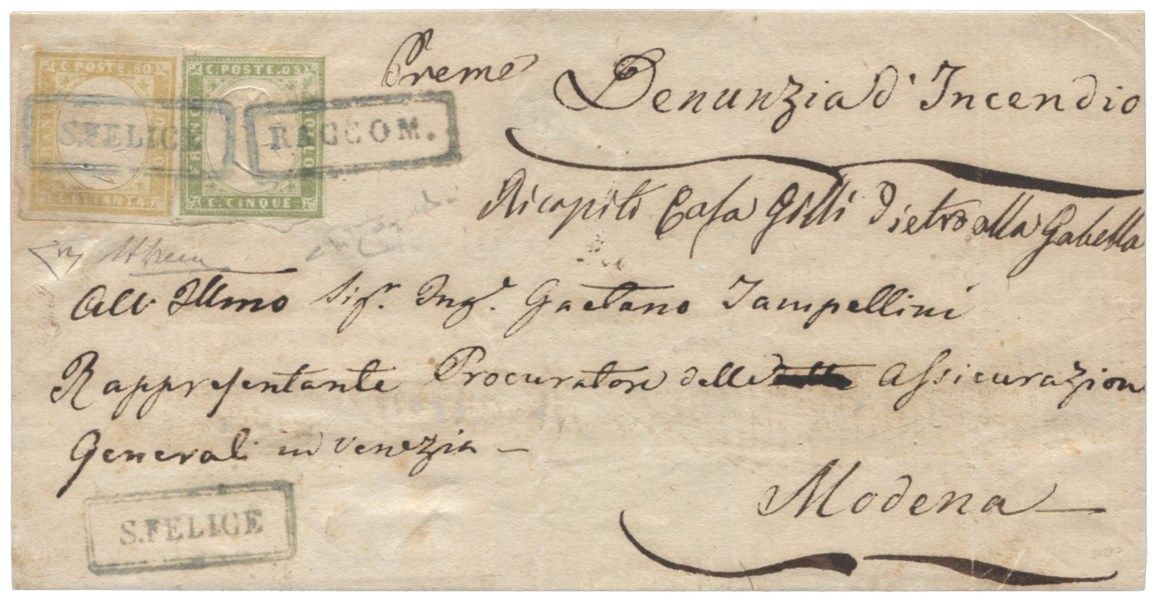 C. POSTE. 80
C. POSTE. 05
Preme
Denunzia d'Incendio
S. FELICE
RACCOM.
C. OTTANTA
C. CINQUE
Ricapiti Casa Gilli Dietro alla Gabella
All' Illmo Sigr. Ingr. Gaetano Jampellini
Rappresentante Procuratore delle Assicurazion
Generali in Venezia –
Modena
S. FELICE